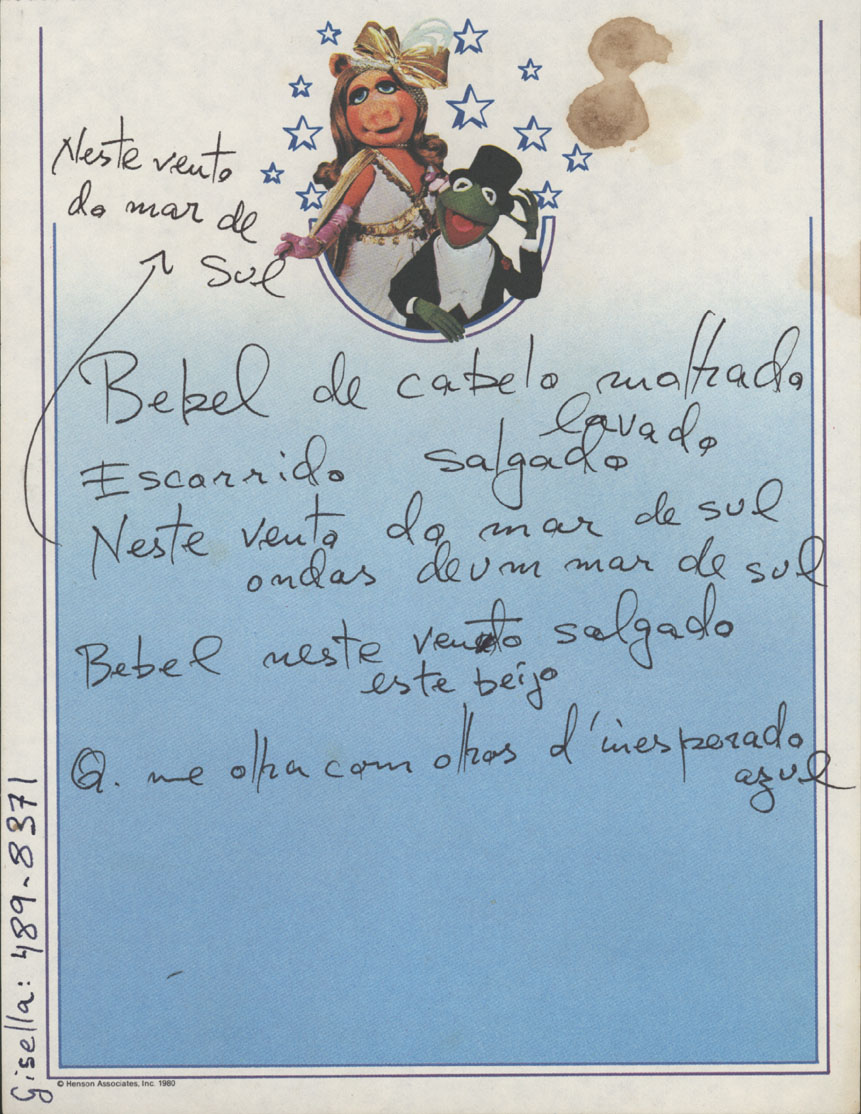 Neste vento
do mar de
Sul
Bebel de cabelo maltrado
lavado
Escorrido salgado
Neste vento do mar de sul
ondas de um mar de sul
Bebel neste vento salgado
este beijo
Q. me olha com olhos d'inesperado
azul
Gisella: 489-8371
© Henson Associates, Inc. 1980